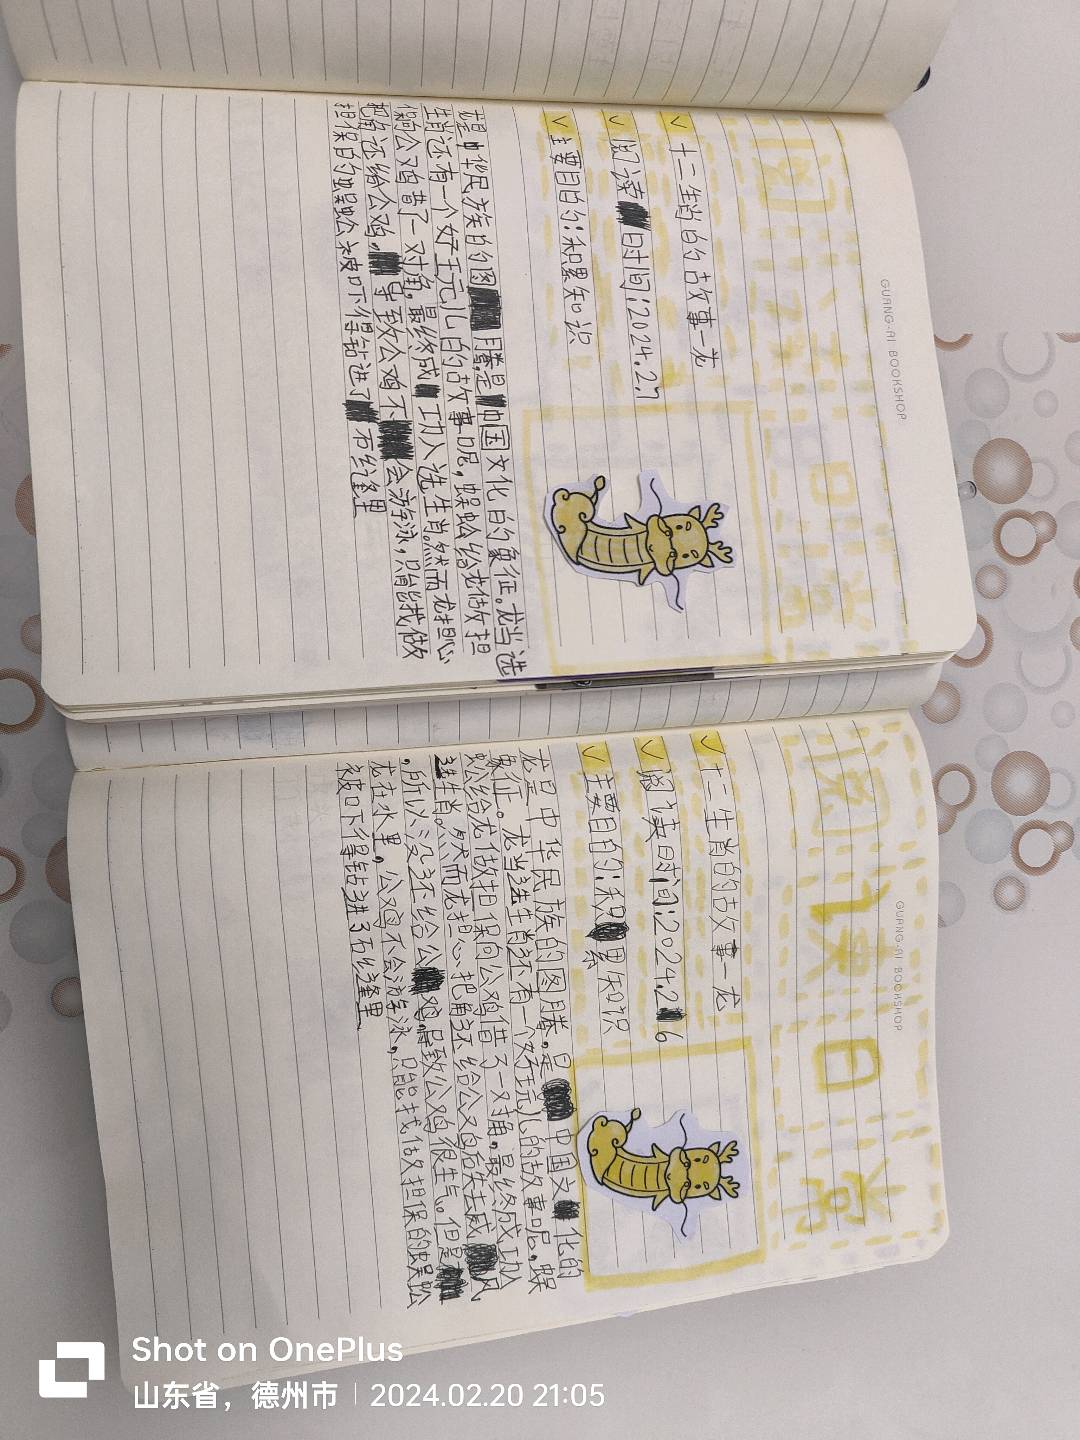 GUANG-AI BOOKSHOP
阅读日常
十二生肖的故事一龙
阅读时间:2024.2.7
主要目的:积累知识
龙是中华民族的图腾,是中国文化的象征。龙当选
生肖还有一个好玩儿的故事呢,蜈蚣给龙做担
保向公鸡借了一对角,最终成功入选生肖。然而龙担心
把角还给公鸡,导致公鸡不会游泳,只能找做
担保的蜈蚣被吓得钻进了石缝里
GUANG-AI BOOKSHOP
阅读日常
十二生肖的故事一龙
阅读时间:2024.2.16
主要目的:积累知识
龙是中华民族的图腾,是中国文化的
象征。龙当选生肖还有一个好玩儿的故事呢,蜈
蚣给龙做担保向公鸡借了一对角,最终成功入
选生肖。然而龙担心把角还给公鸡后失去威风
,所以没还给公鸡,导致公鸡很生气。但是
龙在水里,公鸡不会游泳,只能找做担保的蜈蚣
被吓得钻进了石缝里
Shot on OnePlus
山东省，德州市 | 2024.02.20 21:05